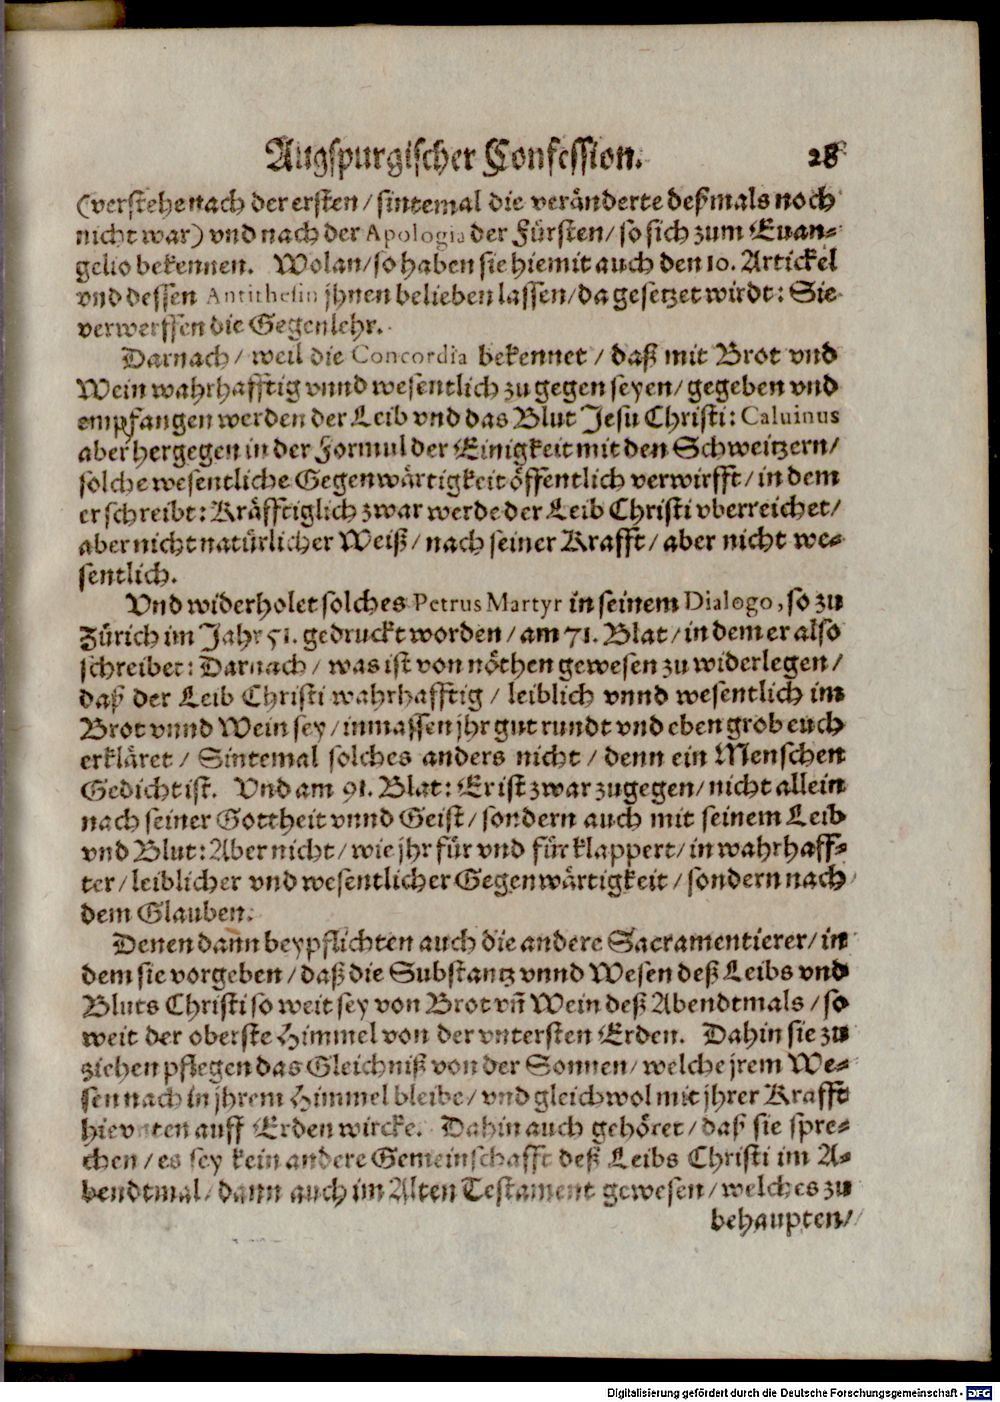 Augspurgischer Confession. 28
(verstehe nach der ersten / sintemal die veränderte deßmals noch
nicht war) vnd nach der Apologia der Fürsten / so sich zum Euan-
gelio bekennen. Wolan / so haben sie hiemit auch den 10. Artickel
vnd dessen Antithesin jhnen belieben lassen / da gesetzet wirdt: Sie
verwerffen die Gegenlehr.
Darnach / weil die Concordia bekennet / daß mit Brot vnd
Wein wahrhafftig vnnd wesentlich zu gegen seyen / gegeben vnd
empfangen werden der Leib vnd das Blut Jesu Christi: Caluinus
aber hergegen in der Formul der Einigkeit mit den Schweitzern /
solche wesentliche Gegenwärtigkeit öffentlich verwirfft / in dem
er schreibt: Kräfftiglich zwar werde der Leib Christi vberreichet /
aber nicht natürlicher Weiß / nach seiner Krafft / aber nicht we-
sentlich.
Vnd widerholet solches Petrus Martyr in seinem Dialogo, so zu
Zürich im Jahr 51. gedruckt worden / am 71. Blat / in dem er also
schreibet: Darnach / was ist von nöthen gewesen zu widerlegen /
daß der Leib Christi wahrhafftig / leiblich vnnd wesentlich im
Brot vnnd Wein sey / inmassen jhr gut rundt vnd eben grob euch
erkläret / Sintemal solches anders nicht / denn ein Menschen
Gedicht ist. Vnd am 91. Blat: Er ist zwar zugegen / nicht allein
nach seiner Gottheit vnnd Geist / sondern auch mit seinem Leib
vnd Blut: Aber nicht / wie jhr für vnd für klappert / in wahrhaff-
ter / leiblicher vnd wesentlicher Gegenwärtigkeit / sondern nach
dem Glauben.
Denen dann beypflichten auch die andere Sacramentierer / in
dem sie vorgeben / daß die Substantz vnnd Wesen deß Leibs vnd
Bluts Christi so weit sey von Brot vñ Wein deß Abendtmals / so
weit der oberste Himmel von der vntersten Erden. Dahin sie zu
ziehen pflegen das Gleichniß von der Sonnen / welche jrem We-
sen nach in jhrem Himmel bleibe / vnd gleichwol mit jhrer Krafft
hievnten auff Erden wircke. Dahin auch gehöret / daß sie spre-
chen / es sey kein andere Gemeinschafft deß Leibs Christi im A-
bendtmal / dann auch im Alten Testament gewesen / welches zu
behaupten /
Digitalisierung gefördert durch die Deutsche Forschungsgemeinschaft - DFG